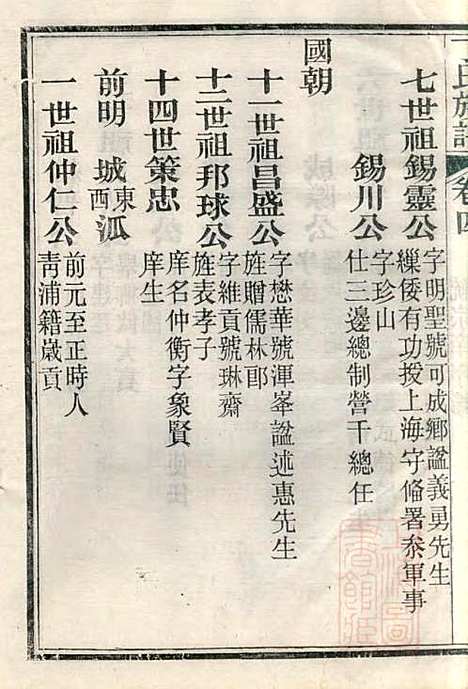 氏族譜 卷四
七世祖錫靈公 字明聖號可成鄉諡義勇先生
繅倭有功授上海守偹署叅軍事
錫川公 字珍山
仕三邊總制營千總任
國朝
十一世祖昌盛公 字懋華號渾峯諡述惠先生
旌贈儒林郎
十二世祖邦球公 字維貢號琳齋
旌表孝子
十四世策忠 庠名仲衡字象賢
庠生
前明 城東西泒
一世祖仲仁公 前元至正時人
靑浦籍嵗貢